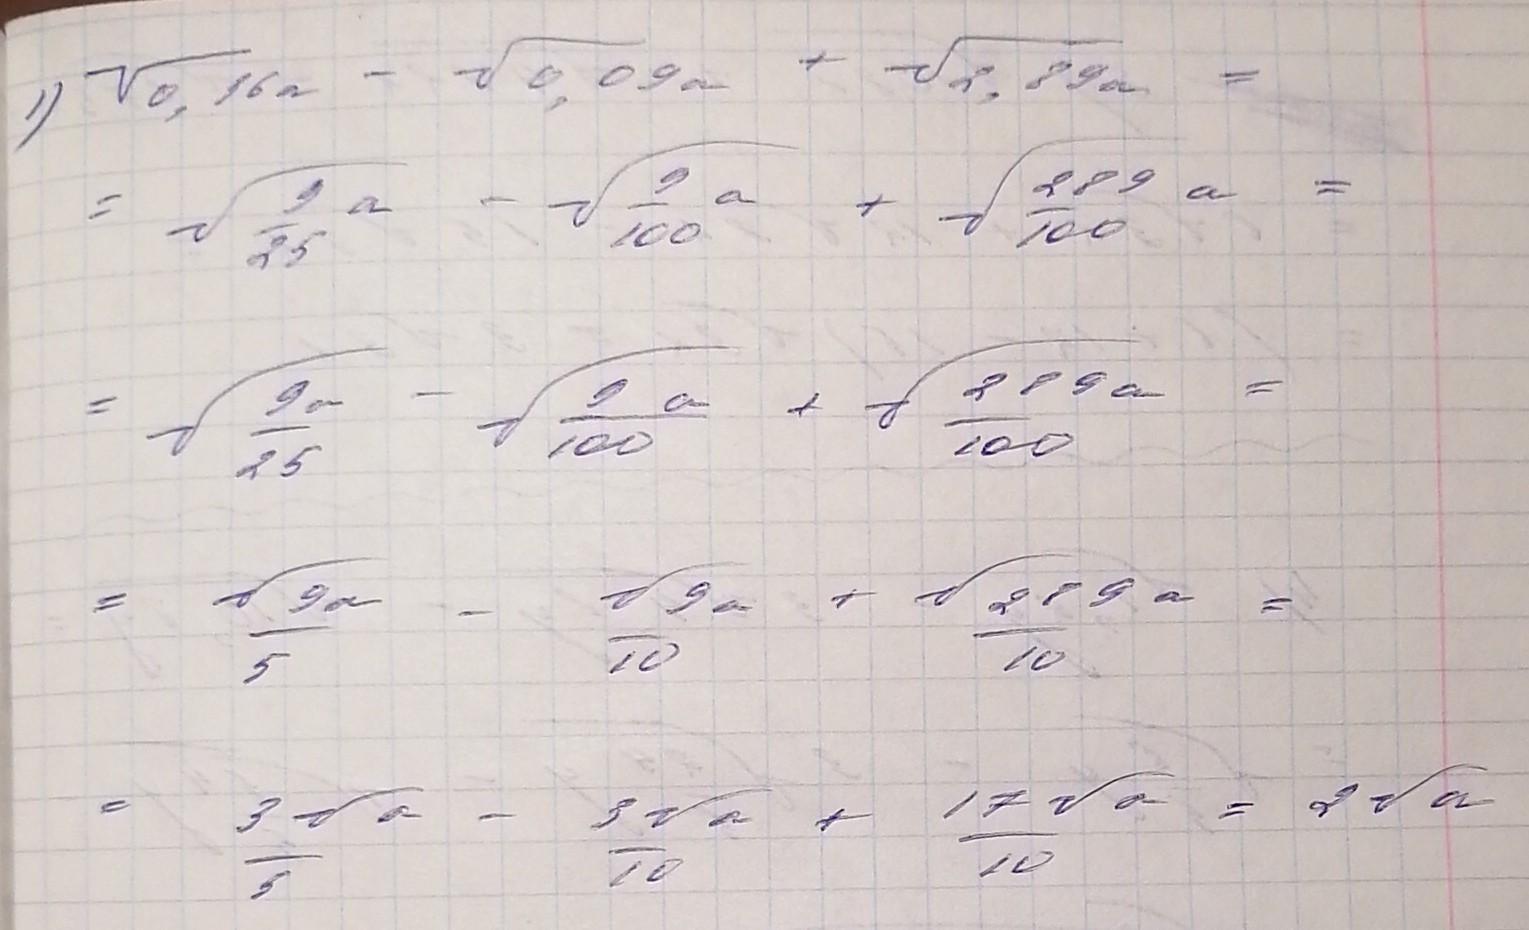 1) √0,16a - √0,09a + √2,89a =
= √(9/25 a) - √(9/100 a) + √(289/100 a) =
= √(9a/25) - √(9a/100) + √(289a/100) =
= √9a/5 - √9a/10 + √289a/10 =
= 3√a/5 - 3√a/10 + 17√a/10 = 2√a